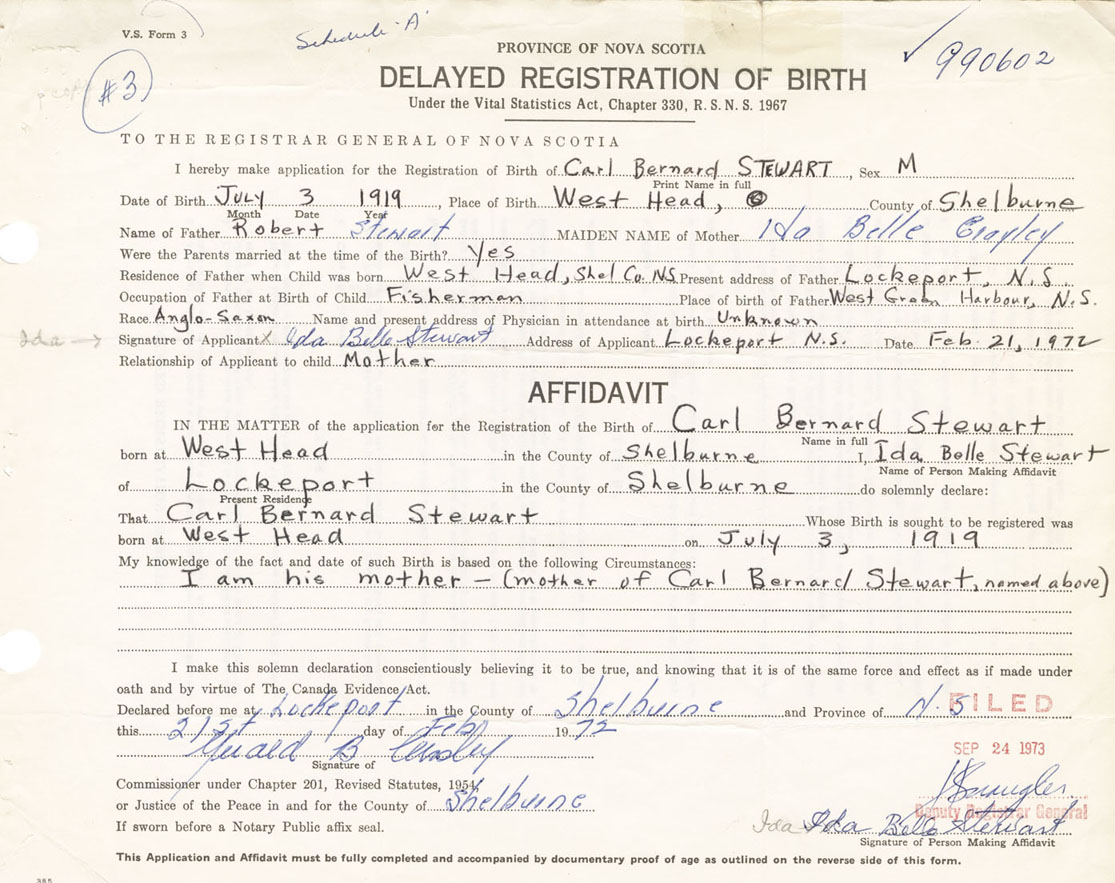 V.S. Form 3
Schedule 'A'
✓ 990602
#3
PROVINCE OF NOVA SCOTIA
DELAYED REGISTRATION OF BIRTH
Under the Vital Statistics Act, Chapter 330, R.S.N.S. 1967
TO THE REGISTRAR GENERAL OF NOVA SCOTIA
I hereby make application for the Registration of Birth of Carl Bernard STEWART, Sex M
Print Name in full
Date of Birth July 3 1919, Place of Birth West Head, County of Shelburne
Month Date Year
Name of Father Robert Stewart MAIDEN NAME of Mother Ida Belle
Were the Parents married at the time of the Birth? Yes
Residence of Father when Child was born West Head, Shel Co. NS. Present address of Father Lockeport, N.S.
Occupation of Father at Birth of Child Fisherman Place of birth of Father West Green Harbour, N.S.
Race Anglo-Saxon Name and present address of Physician in attendance at birth Unknown
Ida → Signature of Applicant X Ida Belle Stewart Address of Applicant Lockeport N.S. Date Feb. 21, 1972
Relationship of Applicant to child Mother
AFFIDAVIT
IN THE MATTER of the application for the Registration of the Birth of Carl Bernard Stewart
Name in full
born at West Head in the County of Shelburne I, Ida Belle Stewart
Name of Person Making Affidavit
of Lockeport in the County of Shelburne do solemnly declare:
Present Residence
That Carl Bernard Stewart Whose Birth is sought to be registered was
born at West Head on July 3, 1919
My knowledge of the fact and date of such Birth is based on the following Circumstances:
I am his mother - (mother of Carl Bernard Stewart, named above)
I make this solemn declaration conscientiously believing it to be true, and knowing that it is of the same force and effect as if made under
oath and by virtue of The Canada Evidence Act.
Declared before me at Lockeport in the County of Shelburne and Province of N.S
FILED
this 21st day of Feb 1972
SEP 24 1973
B
Signature of
Commissioner under Chapter 201, Revised Statutes, 1954,
or Justice of the Peace in and for the County of Shelburne
Deputy Registrar General
If sworn before a Notary Public affix seal.
Ida Ida Belle Stewart
Signature of Person Making Affidavit
This Application and Affidavit must be fully completed and accompanied by documentary proof of age as outlined on the reverse side of this form.